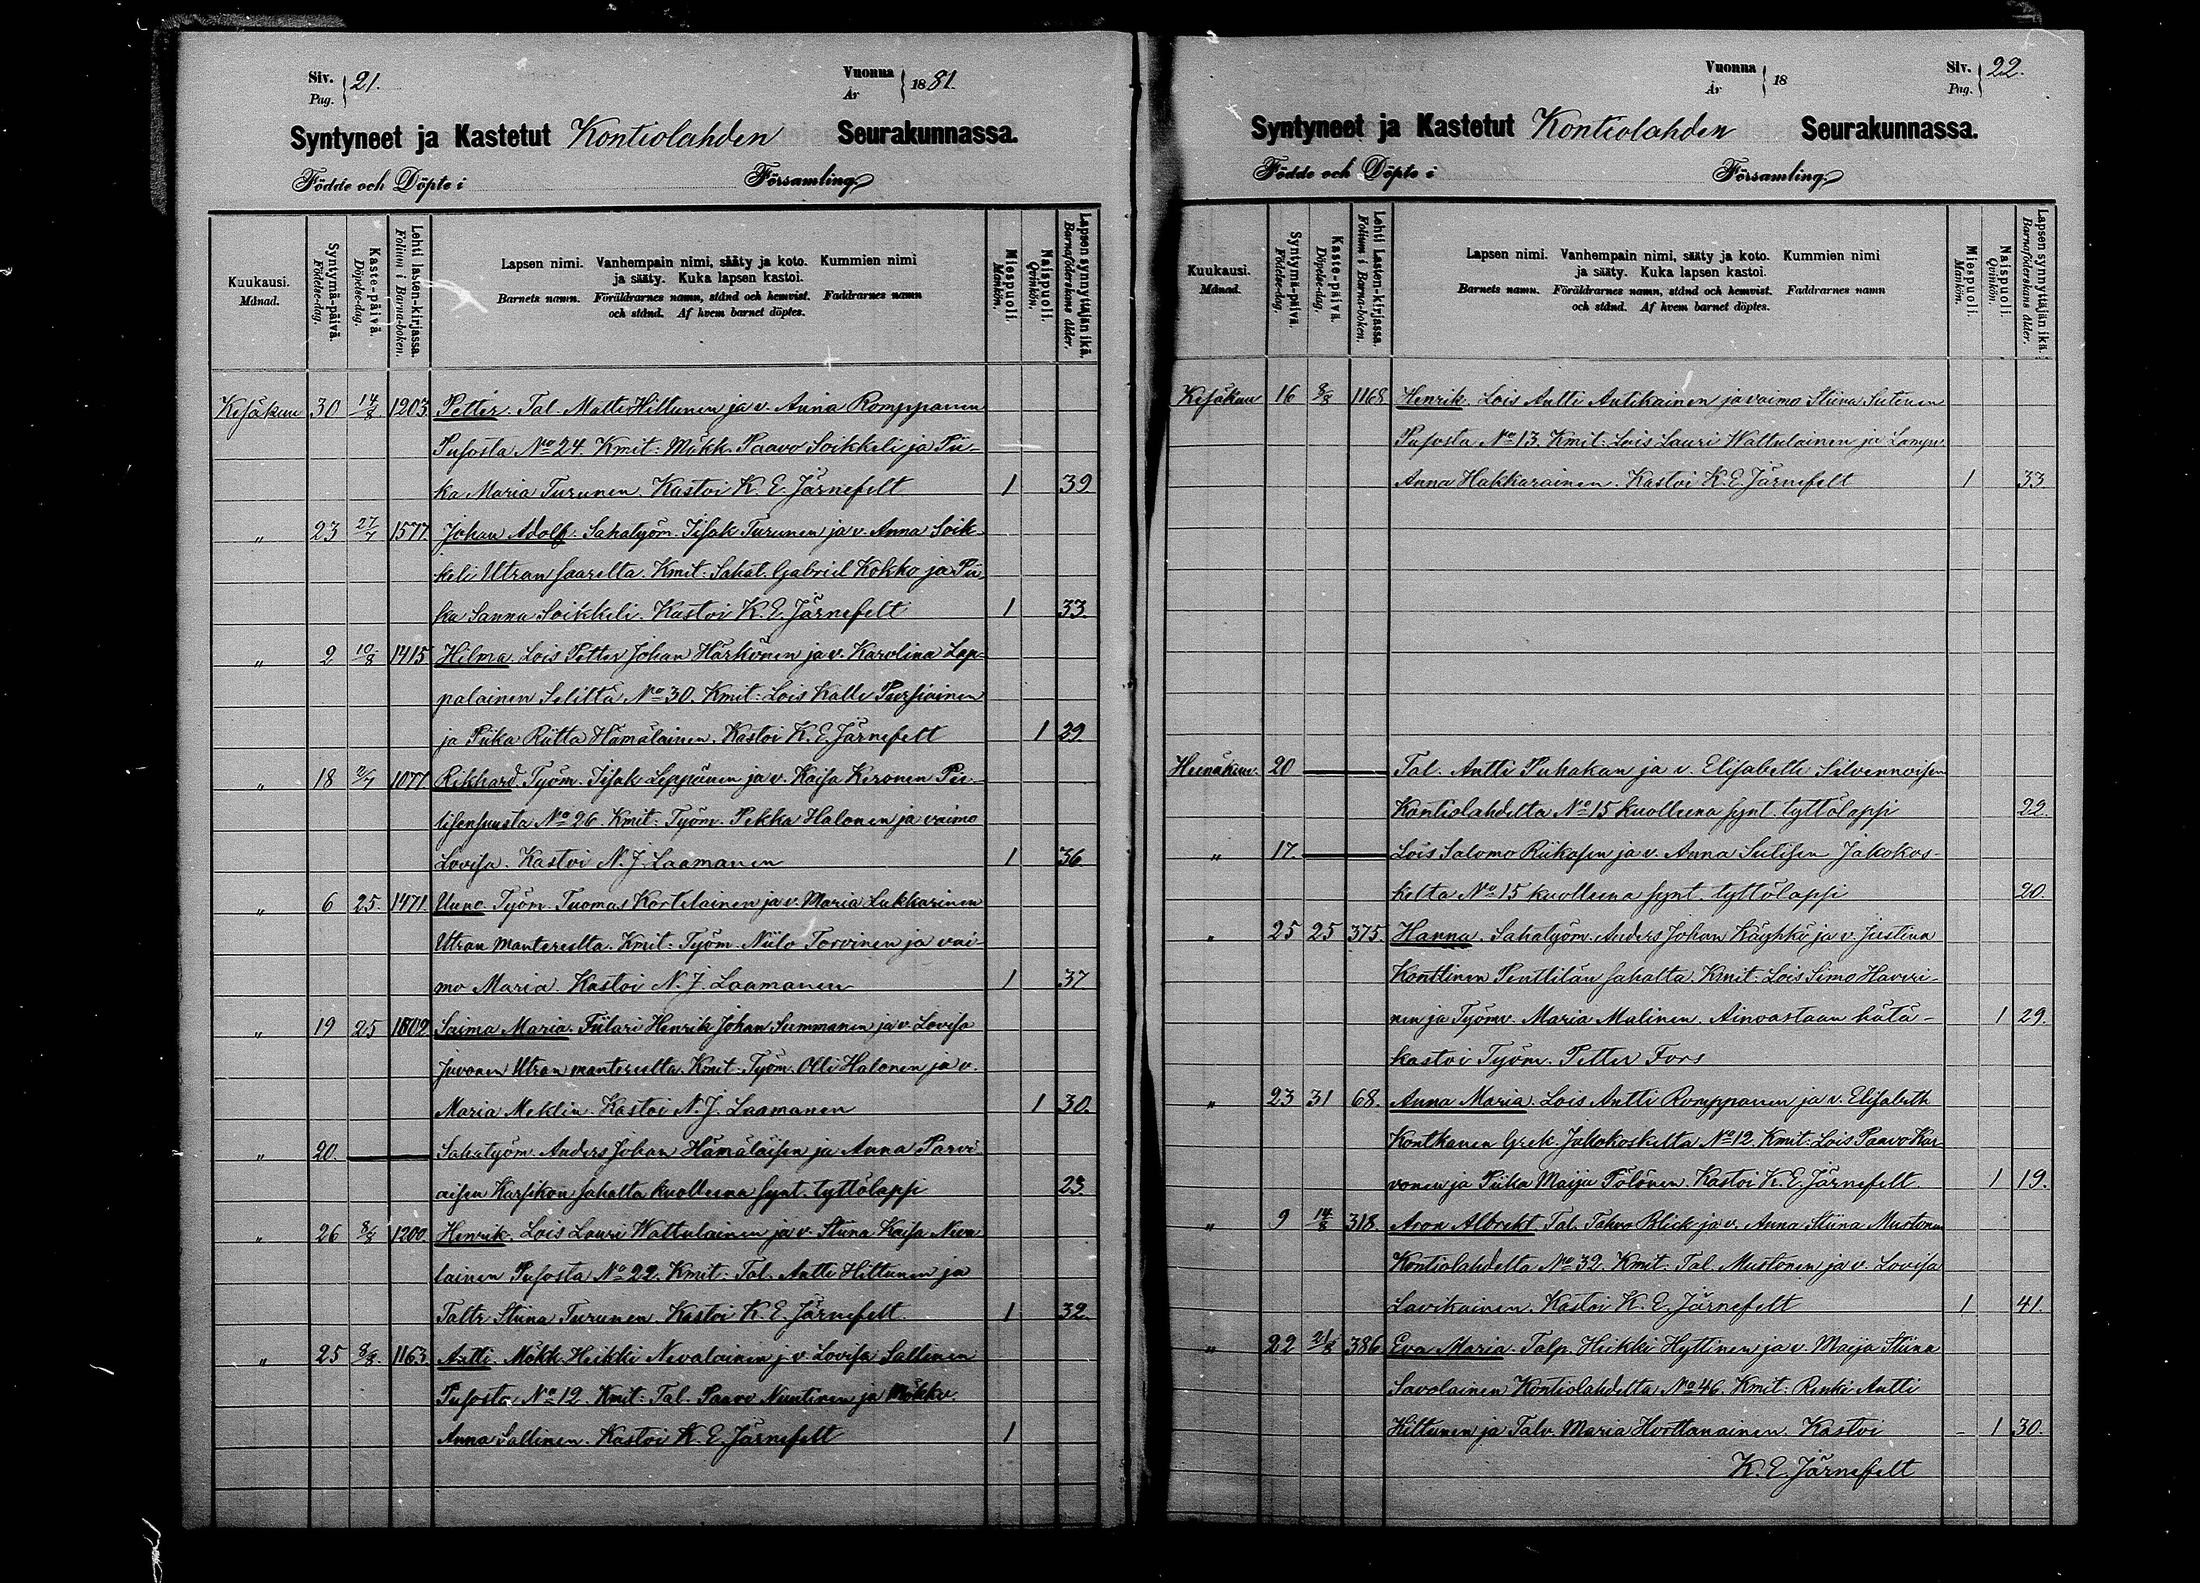 Siv. 21.
Pag.
Vuonna 1881.
År
Syntyneet ja Kastetut Kontiolahden Seurakunnassa.
Födde och Döpte i Församling
Kuukausi.
Månad.
Syntymä-päivä.
Födelse-dag.
Kaste-päivä.
Döpelse-dag.
Lehti lasten-kirjassa.
Folium i Barna-boken.
Lapsen nimi. Vanhempain nimi, sääty ja koto. Kummien nimi
ja sääty. Kuka lapsen kastoi.
Barnets namn. Föräldrarnes namn, stånd och hemvist. Faddrarnes namn
och stånd. Af hvem barnet döptes.
Miespuoli.
Mankön.
Naispuoli.
Qvinkön.
Lapsen synnyttäjän ikä.
Barnaföderskans ålder.
Kesäkuu 30 14/8 1203 Petter. Tal. Matti Hiltunen ja v. Anna Romppanen
Pusosta No 24. Kmit: Mökk. Paavo Soikkeli ja Pii-
ka Maria Turunen. Kastoi K. E. Järnefelt 1 39
" 23 27/7 1577 Johan Adolf. Sahatyöm. Iisak Turunen ja v. Anna Soik-
keli Utran saarelta. Kmit: Sahat. Gabriel Kokko ja Pii
ka Sanna Soikkeli. Kastoi K. E. Järnefelt 1 33.
" 2 10/8 1415 Hilma. Lois Petter Johan Härkönen ja v. Karolina Lap-
palainen Seliltä No 30. Kmit: Lois Kalle Pursiainen
ja Piika Riitta Hämäläinen. Kastoi K. E. Järnefelt 1 29.
" 18 1077 Rikhard. Työm. Iisak Leppänen ja v. Kaisa Keronen Pie-
lisensuusta No 26. Kmit: Työm. Pekka Halonen ja vaimo
Lovisa. Kastoi N. J. Laamanen 1 36
" 6 25. 1471 Uuno. Työm. Tuomas Kortelainen ja v. Maria Lukkarinen
Utran mantereelta. Kmit: Työm. Niilo Torvinen ja vai-
mo Maria. Kastoi N. J. Laamanen 1 37
" 19 25 1602 Saima Maria. Fiilari Henrik Johan Summanen ja v. Lovisa
Juvonen Utran mantereelta. Kmit: Työm. Olli Halonen ja v.
Maria Meklin. Kastoi N. J. Laamanen 1 30.
" 20. Sahatyöm. Anders Johan Hämäläisen ja Anna Parvi
aisen Karsikon sahalta kuolleena synt. tyttölapsi 23.
" 26 8/8 1200. Henrik. Lois Lauri Wattulainen ja v. Stiina Kaisa Neva
lainen Pusosta No 22. Kmit: Tal. Antti Hiltunen ja
Taltr Stiina Turunen. Kastoi K. E. Järnefelt. 1 32.
" 25 8/8. 1163 Antti. Mökk. Heikki Nevalainen j. v. Lovisa Sallinen
Pusosta No 12. Kmit: Tal. Paavo Nuutinen ja Mökkv.
Anna Sallinen. Kastoi K. E. Järnefelt 1
Vuonna 18
År
Siv. 22.
Pag.
Syntyneet ja Kastetut Kontiolahden Seurakunnassa.
Födde och Döpte i Församling
Kuukausi.
Månad.
Syntymä-päivä.
Födelse-dag.
Kaste-päivä.
Döpelse-dag.
Lehti Lasten-kirjassa.
Folium i Barna-boken.
Lapsen nimi. Vanhempain nimi, sääty ja koto. Kummien nimi
ja sääty. Kuka lapsen kastoi.
Barnets namn. Föräldrarnes namn, stånd och hemvist. Faddrarnes namn
och stånd. Af hvem barnet döptes.
Miespuoli.
Mankön.
Naispuoli.
Qvinkön.
Lapsen synnyttäjän ikä.
Barnaföderskans ålder.
Kesäkuu 16 8/8 1168 Henrik. Lois Antti Antikainen ja vaimo Stiina Sutinen
Pusosta No 13. Kmit: Lois Lauri Wattulainen ja
Anna Hakkarainen. Kastoi K. E. Järnefelt 1 33
Heinäkuu 20 Tal. Antti Puhakan ja v. Elisabeth Silvennoisen
Kontiolahdelta No 15 kuolleena synt. tyttölapsi 22.
" 17. Lois Salomo Riikosen ja v. Anna Sutisen Jakokos-
kelta No 15 kuolleena synt. tyttölapsi 20.
" 25 25 375. Hanna. Sahatyöm. Anders Johan Käyhkö ja v. Justiina
Konttinen Penttilän sahalta. Kmit: Lois Simo Haveri-
nen ja Työmv. Maria Malinen. Ainoastaan hätä- 1 29.
kastoi Työm. Petter Fors
" 23 31 68. Anna Maria. Lois Antti Romppanen ja v. Elisabeth
Kontkanen Grek. Jakokoskelta No 12. Kmit: Lois Paavo Kar
vonen ja Piika Maija Pölönen. Kastoi K. E. Järnefelt. 1 19.
" 9 14/8 318. Aron Albrekt Tal. Tahvo Blick ja v. Anna Stiina Mustonen
Kontiolahdelta No 32. Kmit: Tal. Mustonen ja v. Lovisa
Lavikainen. Kastoi K. E. Järnefelt 1 41.
" 22 21/8 386 Eva Maria. Talp. Heikki Hyttinen ja v. Maija Stiina
Savolainen Kontiolahdelta No 46. Kmit: Renki Antti
Hiltunen ja Talv. Maria Horttanainen. Kastoi - 1 30.
K. E. Järnefelt